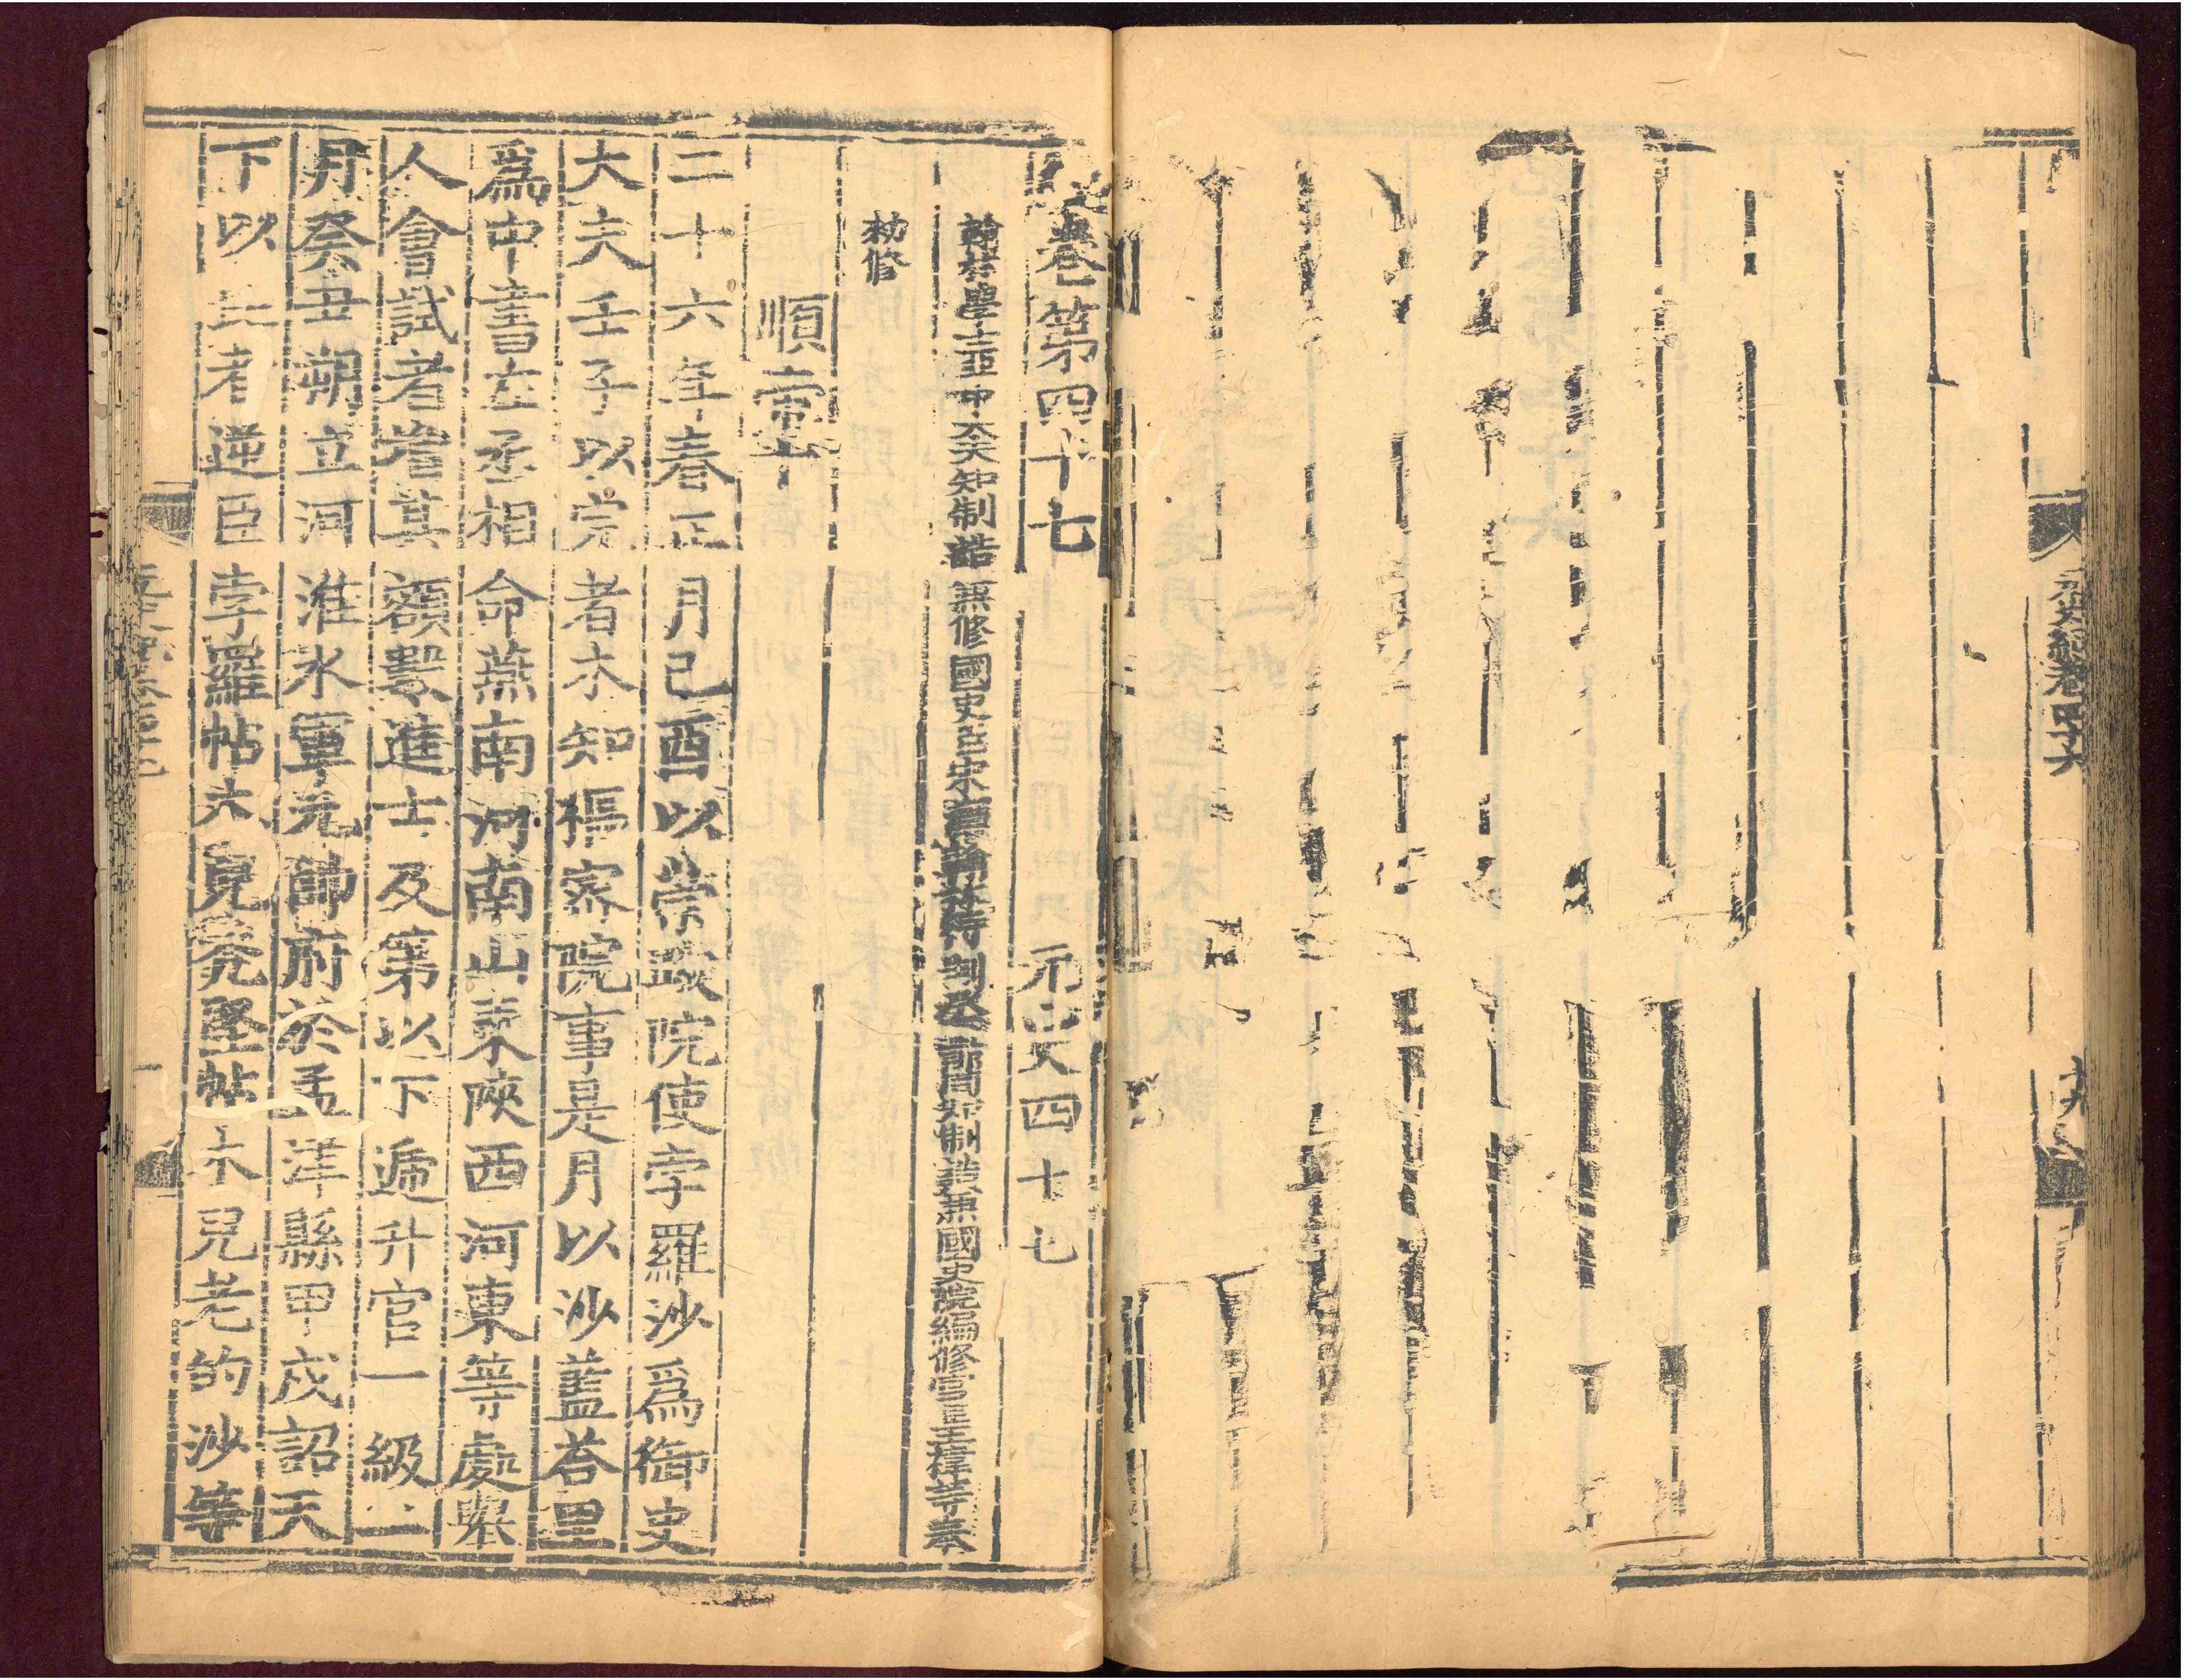 元史紀卷四十六
十九
卷第四十七 元史四十七
翰林學士亞中大夫知制誥兼修國史臣宋濂翰林待制承直郎同知制誥兼國史院編修官臣王禕等奉
勑修
順帝
二十六年春正月己酉以崇政院使孛羅沙爲御史
大夫壬子以完者木知樞密院事是月以沙藍荅里
爲中書左丞相命燕南河南山東陝西河東等處舉
人會試者增其額數進士及第以下遞升官一級二
月癸丑朔立河淮水軍元帥府於孟津縣甲戌詔天
下以比者逆臣孛羅帖木兒禿堅帖木兒老的沙等